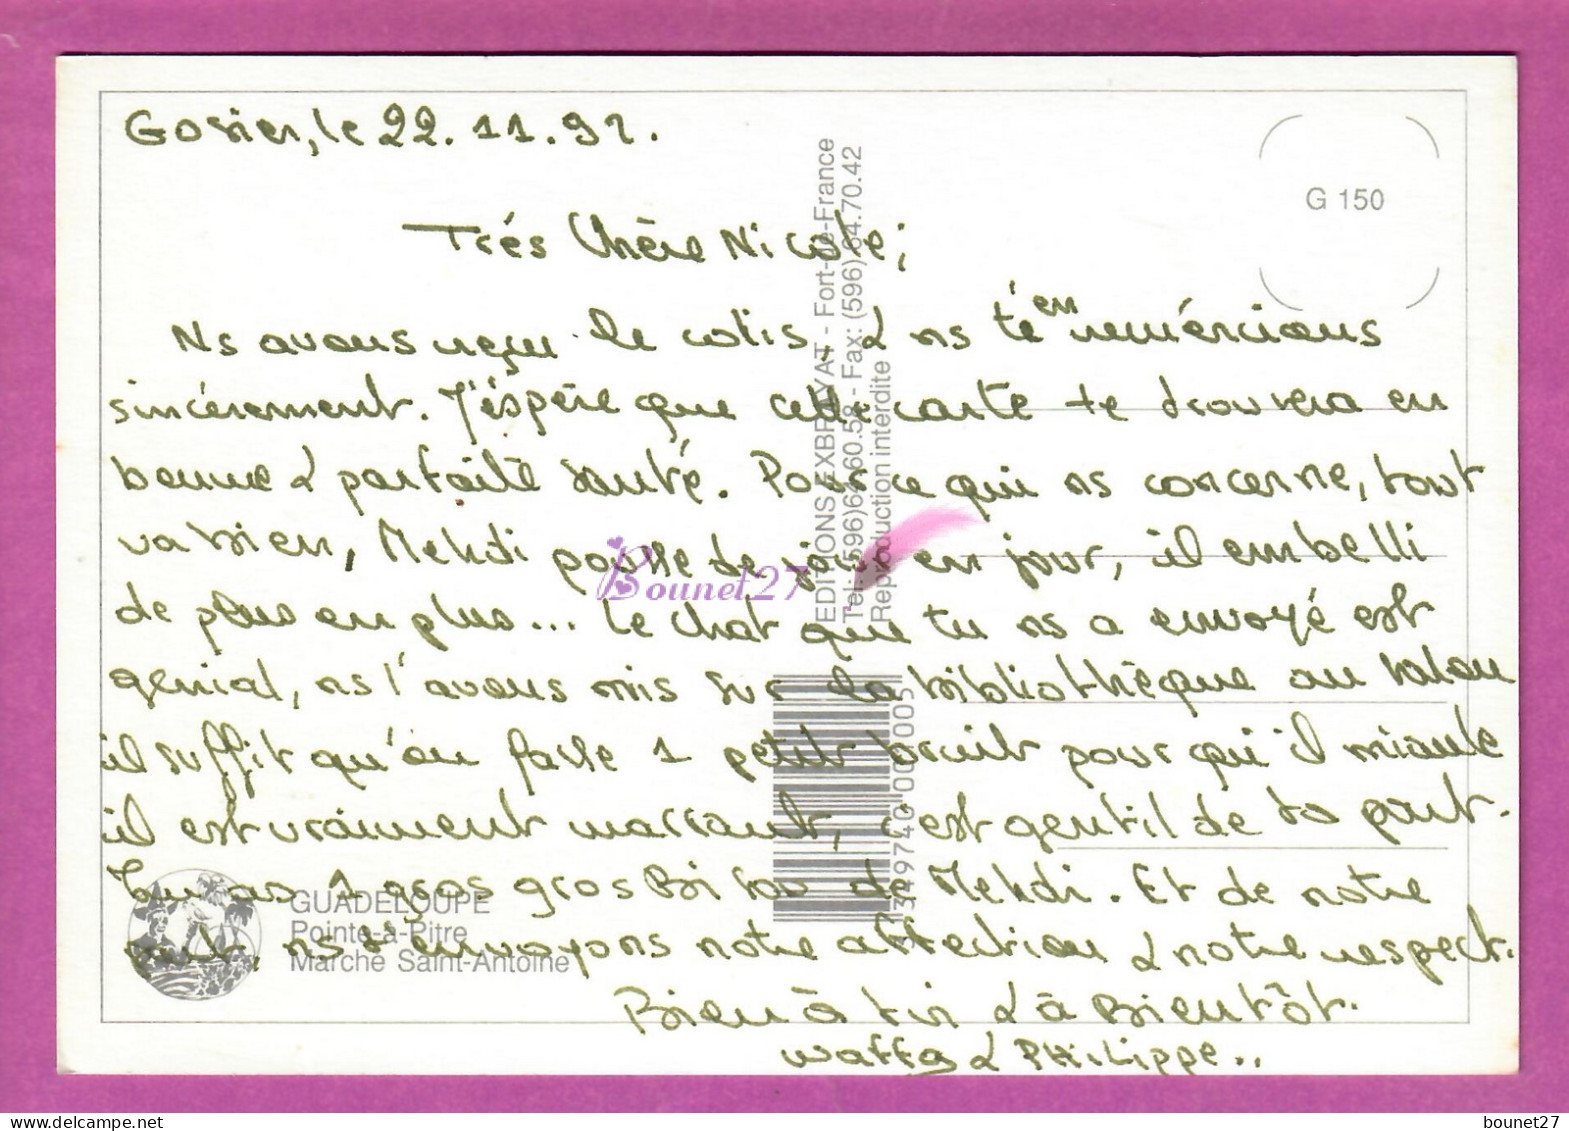 Gosier, le 22.11.92.
G 150
Très Chère Nicole;
Ns avons reçu le colis, & ns t'en remércions
sincérement. J'éspère que cette carte te trouvera en
bonne & parfaite santé. Pour ce qui ns concerne, tout
va bien, Mehdi pousse de jour en jour, il embelli
de plus en plus... Le chat que tu ns a envoyé est
genial, ns l'avons mis sur la bibliothèque au salon
il suffit qu'on fasse 1 petit bruit pour qu'il miaule
il est vraiment marrant, c'est gentil de ta part.
Tu as 1 gros gros Bisou de Mehdi. Et de notre
part, ns t'envoyons notre affection & notre respect.
Bien à toi & à Bientôt.
Waffa & PHILIPPE..
EDITIONS EXBRAYAT - Fort-de-France
Tél: (596) 60.58 - Fax: (596) 64.70.42
Reproduction interdite
GUADELOUPE
Pointe-à-Pitre
Marché Saint-Antoine
Bounet27
bounet27